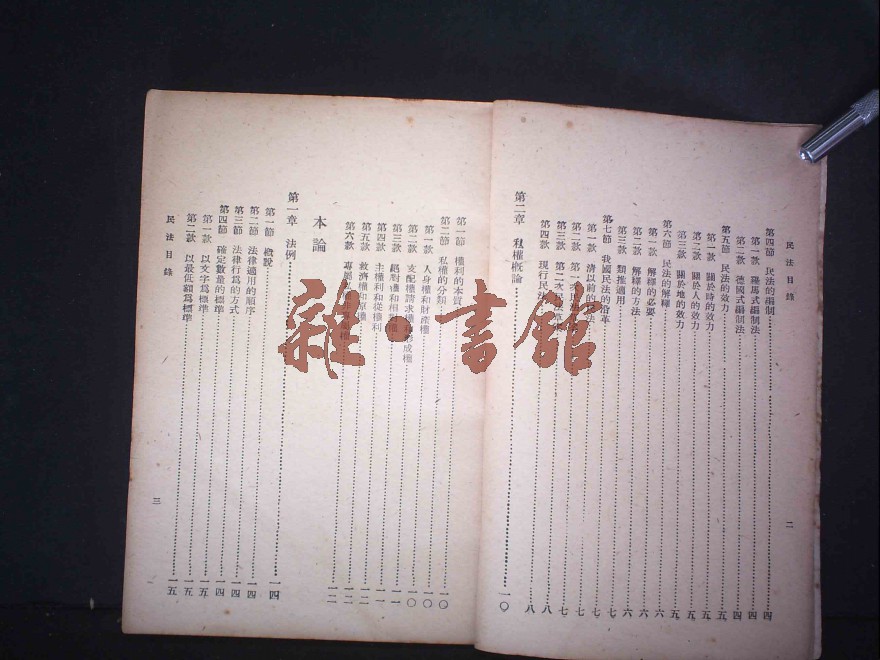 民法目錄
二
第四節 民法的編制 四
第一款 羅馬式編制法 四
第二款 德國式編制法 四
第五節 民法的效力 五
第一款 關於時的效力 五
第二款 關於人的效力 五
第三款 關於地的效力 五
第六節 民法的解釋 六
第一款 解釋的必要 六
第二款 解釋的方法 六
第三款 類推適用 七
第七節 我國民法的沿革 七
第一款 清以前的民法 七
第二款 第一次民
第三款 第二次民
第四款 現行民法 八
第二章 私權概論 一〇
第一節 權利的本質 一〇
第二節 私權的分類 一〇
第一款 人身權和財產權 一〇
第二款 支配權請求權 形成權 一〇
第三款 絕對權和相對權 一一
第四款 主權利和從權利 一一
第五款 救濟權和原權 一二
第六款 專屬權 一二
本論
第一章 法例 一四
第一節 概說 一四
第二節 法律適用的順序 一四
第三節 法律行為的方式 一四
第四節 確定數量的標準 一四
第一款 以文字爲標準 一五
第二款 以最低額爲標準 一五
民法目錄
三
雜·書館